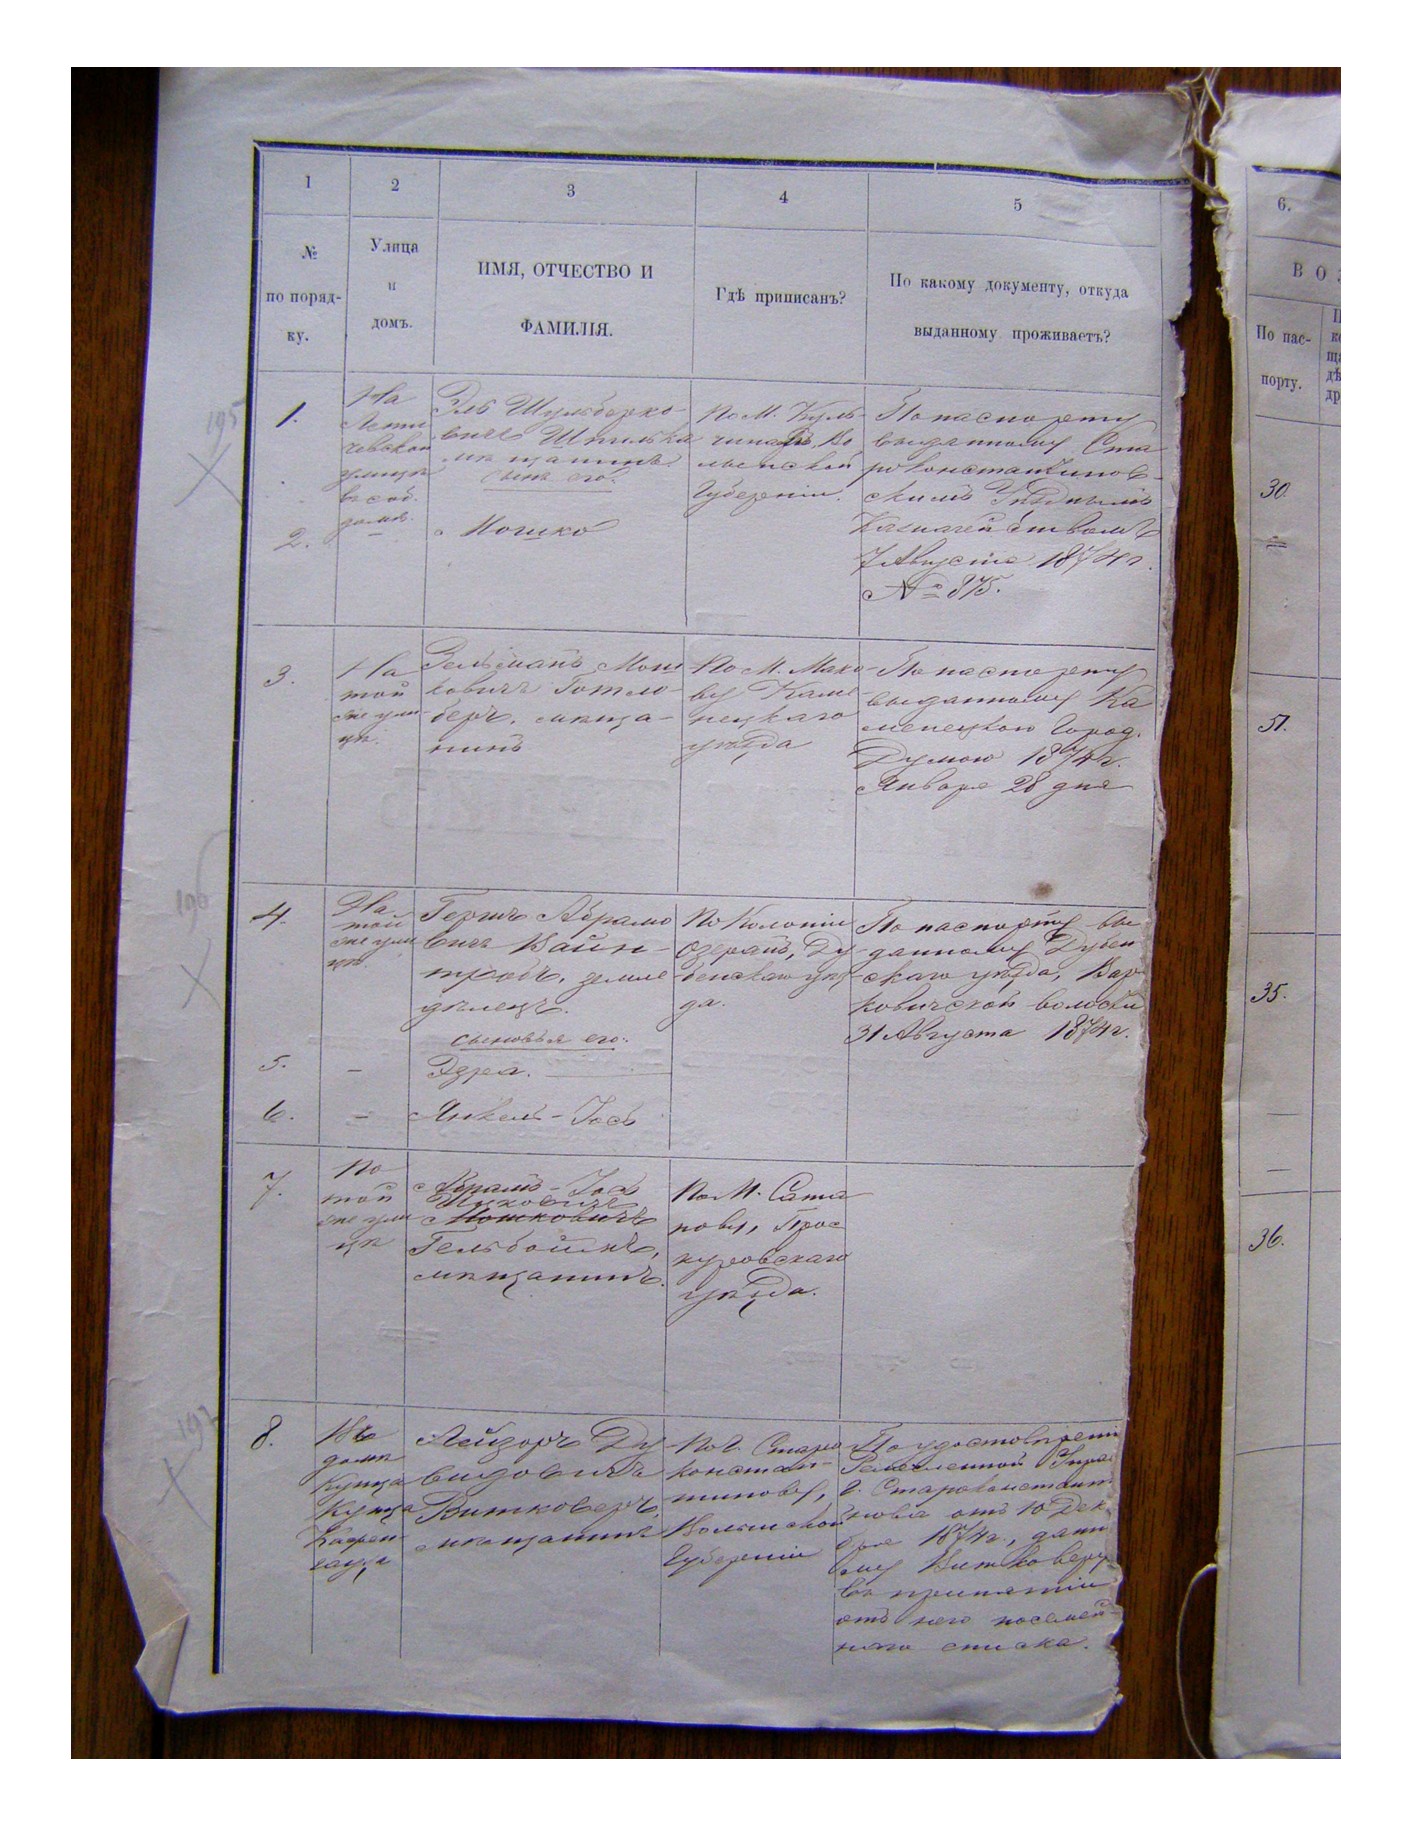 1
2
3
4
5
6.
№
по поряд-
ку.
Улица
и
домъ.
ИМЯ, ОТЧЕСТВО И
ФАМИЛІЯ.
Гдѣ приписанъ?
По какому документу, откуда
выданному проживаетъ?
В О З
По пас-
порту.
195
1.
На
Лети
чевской
улицѣ
въ соб.
домѣ.
Эль Шульберко-
вичъ Шпилька
мѣщанинъ.
сынъ его.
По М. Куль-
чинамъ, Во
лынской
Губерніи.
По паспорту
выданному Ста
роконстантинов-
скимъ Уѣзднымъ
Казначействомъ
7 Августа 1874 г.
№ 875.
30.
2.
–
Мошко
=
3.
На
той
же ули
цѣ.
Зельманъ Мош
ковичъ Готло-
беръ, мѣща-
нинъ
По М. Мако-
ву Каме-
нецкаго
уѣзда
По паспорту
выданному Ка
менецкою Город.
Думою 1874 г.
Января 28 дня
51.
196
4.
На
той
же ули
цѣ.
Гершъ Абрамо
вичъ Вайн-
тробъ, земле
дѣлецъ.
сыновья его:
По Колоніи
Озеранъ, Ду
бенскаго уѣз-
да.
По паспорту вы
данному Дубен
скаго уѣзда, Вар
ковичской волости
31 Августа 1874 г.
35.
5.
–
Эзра.
–
6.
–
Янкель-Іосъ
–
7.
По
той
же ули
цѣ
Абрамъ-Іосъ
Мошковичъ
Гельбойнъ,
мѣщанинъ.
По М. Сата
нову, Прос
куровскаго
уѣзда.
36.
197
8.
Въ
домѣ
Купца
Купца
Лейзоръ Ду
видовичъ
Витковеръ,
мѣщанинъ
По г. Старо
констан-
тинову,
Волынской
Губерніи
По удостовѣрені
Ремесленной Упра
г. Староконстант
нова отъ 10 Дек
бря 1874 г., данн
ому Витковеру
въ принятіи
отъ него посемей-
наго списка.